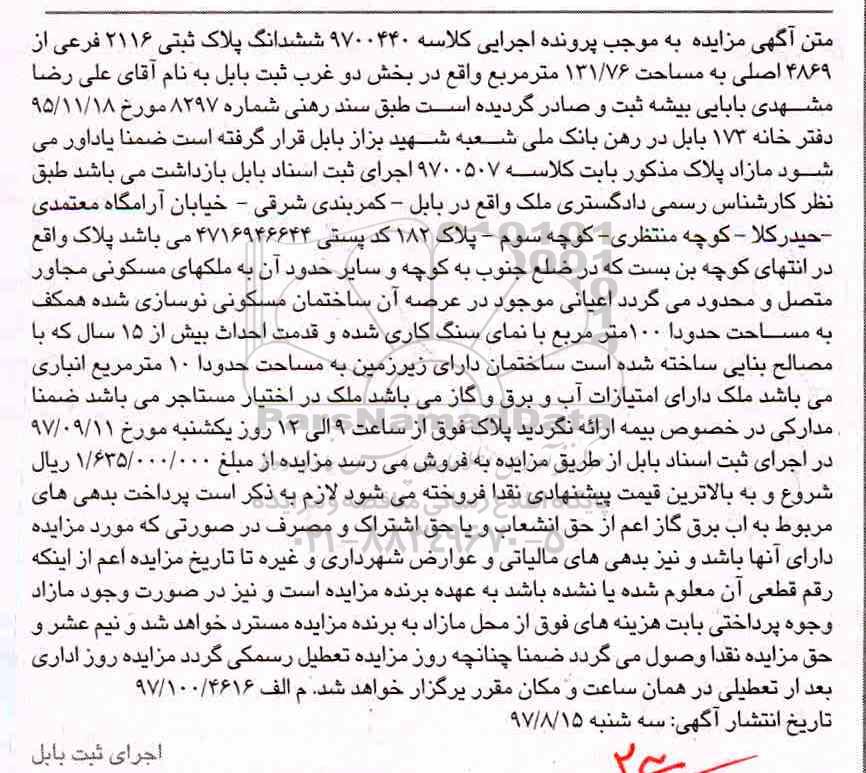 متن آگهی مزایده به موجب پرونده اجرایی کلاسه ۹۷۰۰۴۴۰ ششدانگ پلاک ثبتی ۲۱۱۶ فرعی از
۴۸۶۹ اصلی به مساحت ۱۳۱/۷۶ مترمربع واقع در بخش دو غرب ثبت بابل به نام آقای علی رضا
مشهدی بابایی بیشه ثبت و صادر گردیده است طبق سند رهنی شماره ۸۲۹۷ مورخ ۹۵/۱۱/۱۸
دفتر خانه ۱۷۳ بابل در رهن بانک ملی شعبه شهید بزاز بابل قرار گرفته است ضمنا یاداور می
شود مازاد پلاک مذکور بابت کلاسه ۹۷۰۰۵۰۷ اجرای ثبت اسناد بابل بازداشت می باشد طبق
نظر کارشناس رسمی دادگستری ملک واقع در بابل – کمربندی شرقی – خیابان آرامگاه معتمدی
–حیدرکلا – کوچه منتظری– کوچه سوم – پلاک ۱۸۲ کد پستی ۴۷۱۶۹۴۶۶۴۴ می باشد پلاک واقع
در انتهای کوچه بن بست که در ضلع جنوب به کوچه و سایر حدود آن به ملکهای مسکونی مجاور
متصل و محدود می گردد اعیانی موجود در عرصه آن ساختمان مسکونی نوسازی شده همکف
به مساحت حدودا ۱۰۰متر مربع با نمای سنگ کاری شده و قدمت احداث بیش از ۱۵ سال که با
مصالح بنایی ساخته شده است ساختمان دارای زیرزمین به مساحت حدودا ۱۰ مترمربع انباری
می باشد ملک دارای امتیازات آب و برق و گاز می باشد ملک در اختیار مستاجر می باشد ضمنا
مدارکی در خصوص بیمه ارائه نگردید پلاک فوق از ساعت ۹ الی ۱۲ روز یکشنبه مورخ ۹۷/۰۹/۱۱
در اجرای ثبت اسناد بابل از طریق مزایده به فروش می رسد مزایده از مبلغ ۱/۶۳۵/۰۰۰/۰۰۰ ریال
شروع و به بالاترین قیمت پیشنهادی نقدا فروخته می شود لازم به ذکر است پرداخت بدهی های
مربوط به اب برق گاز اعم از حق انشعاب و یا حق اشتراک و مصرف در صورتی که مورد مزایده
دارای آنها باشد و نیز بدهی های مالیاتی و عوارض شهرداری و غیره تا تاریخ مزایده اعم از اینکه
رقم قطعی آن معلوم شده یا نشده باشد به عهده برنده مزایده است و نیز در صورت وجود مازاد
وجوه پرداختی بابت هزینه های فوق از محل مازاد به برنده مزایده مسترد خواهد شد و نیم عشر و
حق مزایده نقدا وصول می گردد ضمنا چنانچه روز مزایده تعطیل رسمکی گردد مزایده روز اداری
بعد ار تعطیلی در همان ساعت و مکان مقرر برگزار خواهد شد. م الف ۹۷/۱۰۰/۴۶۱۶
تاریخ انتشار آگهی: سه شنبه ۹۷/۸/۱۵
اجرای ثبت بابل
ParsNamadData
پایگاه اطلاع رسانی مناقصه و مزایده
۰۲۱-۸۸۳۴۹۶۷۰-۵